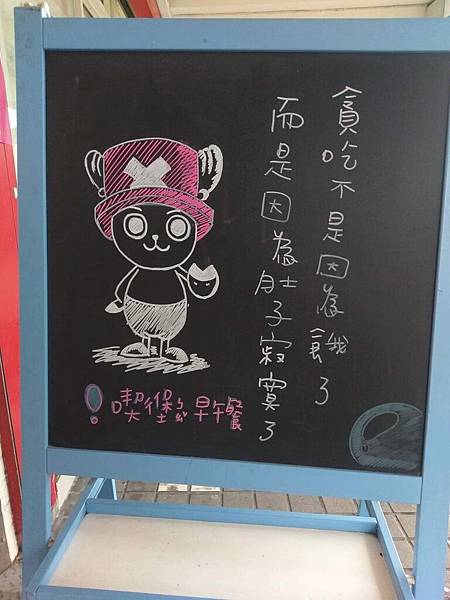 貪吃不是因為餓了
而是因為肚子寂寞了
喫堡早午餐